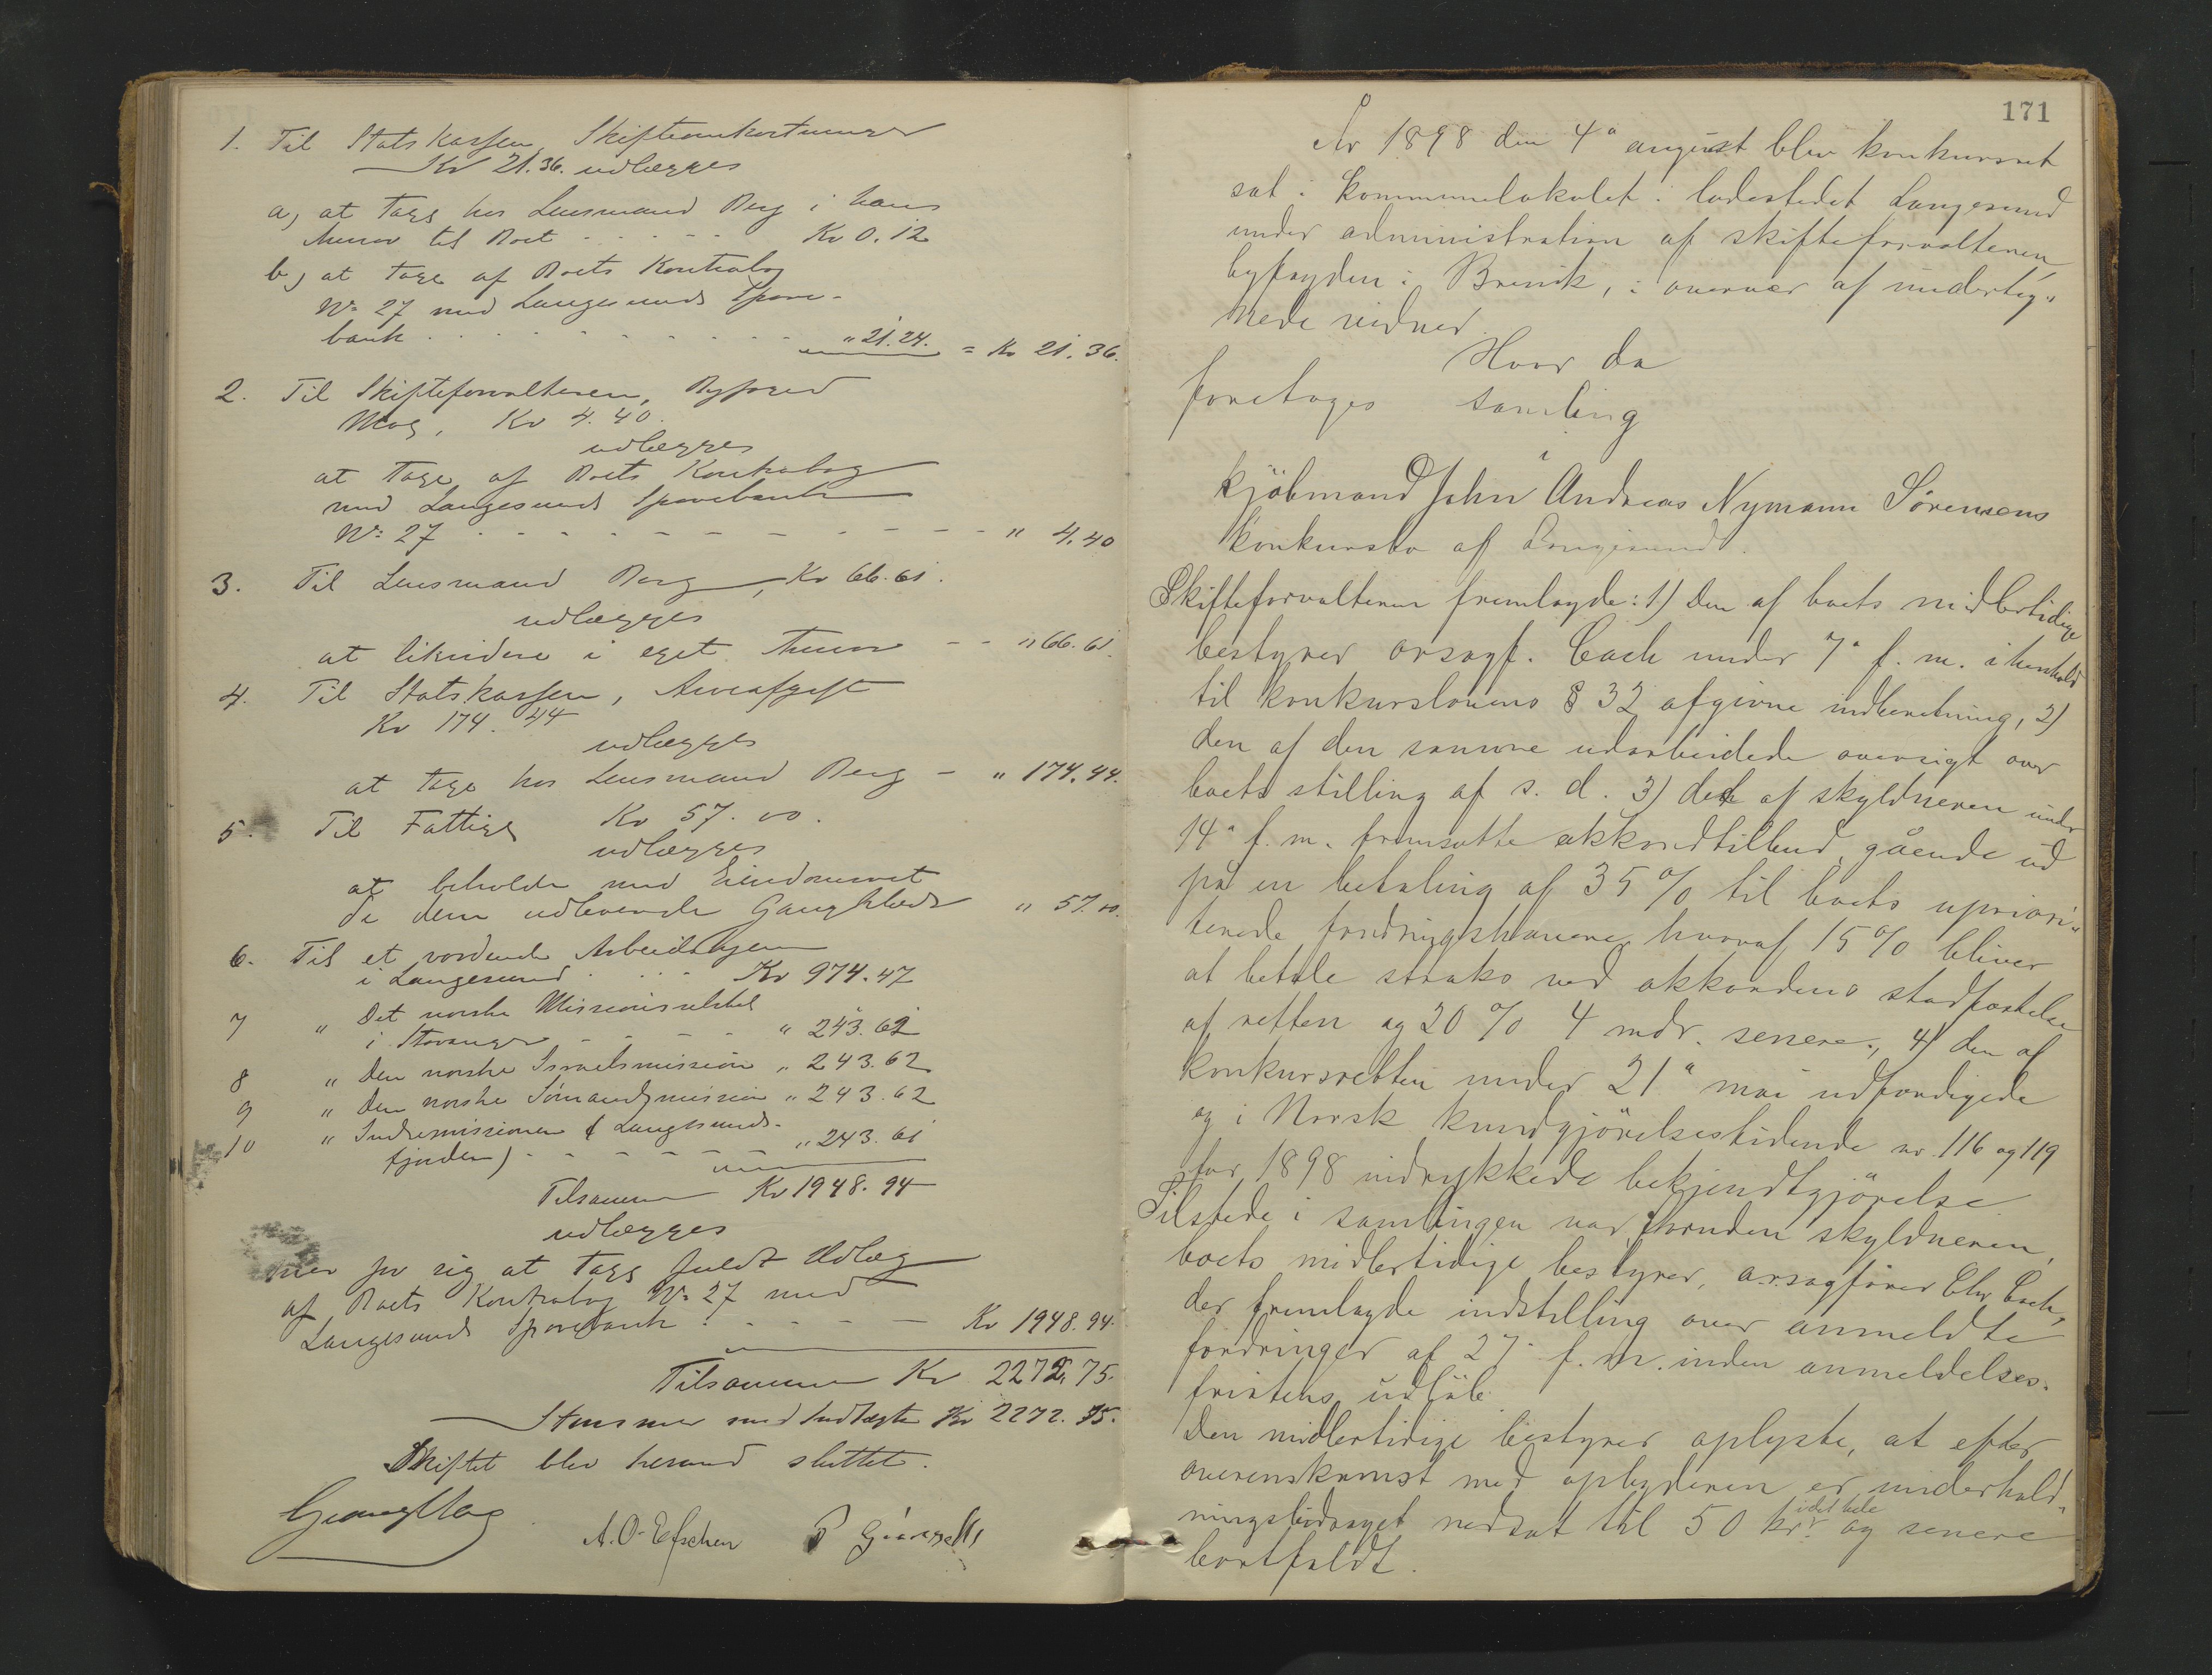 1. Til Statskassen, Skifteomkostninger
Kr 21.36. udlægges
a, at tage hos Lensmand Berg i hans
Numer til Boet - - - - - Kr 0.12
b, at tage af Boets Kontrabog
No 27 med Langesunds Spare-
bank - - - - - - - - „ 21.24. = Kr 21.36.
2. Til Skifteforvalteren, Byfoged
Mag, Kr 4.40.
udlægges
at tage af Boets Kontrabog
med Langesunds Sparebank
No 27 - - - - - - - - - „ 4.40
3. Til Lensmand Berg, Kr 66.61.
udlægges
at likvidere i eget - - „ 66.61.
4. Til Statskassen, Arveafgift
Kr 174.44
udlægges
at tage hos Lensmand Berg - „ 174.44.
5. Til Fattige Kr 57.00.
udlægges
at beholde med Eiendomsret
de dem udleverede Gangklæder „ 57.00.
6. Til et vordende Arbeidshjem
i Langesund - - - Kr 974.47
7 „ Det norske Missionsselskab
i Stavanger - - - - „ 243.62
8 „ Den norske Israelsmission „ 243.62
9 „ Den norske Sømandsmission „ 243.62
10 „ Indremissionen (Langesunds-
fjorden) - - - - - - „ 243.61
Tilsammen Kr 1948.94
udlægges
hver for sig at tage fuldt Udlæg
af Boets Kontrabog No 27 med
Langesunds Sparebank - - - - - Kr 1948.94.
Tilsammen Kr 2272.75.
Stemmer med Indtægten Kr 2272.75.
Skiftet blev hermed sluttet.
Georg Mag A. O. Efschen P
171
År 1898 den 4de august blev konkursret
sat i kommunelokalet i ladestedet Langesund
under administration af skifteforvalteren,
byfogden i Brevik, i overvær af underteg„
nede vidner.
Hvor da
foretoges samling
i
kjöbmand John Andreas Nymann Sörensens
konkursbo af Langesund.
Skifteforvalteren fremlagde: 1) Den af boets midlertidige
bestyrer orsagf. Coch under 7de f. m. i henhold
til konkurslovens § 32 afgivne indberetning, 2)
den af den samme udarbeidede oversigt over
boets stilling af s. d. 3) det af skyldneren under
14de f. m. fremsatte akkordtilbud, gående ud
på en betaling af 35 % til boets upriori„
terede fordringshavere, hvoraf 15 % bliver
at betale straks ved akkordens stadfæstelse
af retten og 20 % 4 mdr. senere, 4) den af
konkursretten under 21de mai udfærdigede
og i Norsk kundgjörelsestidende nr. 116 og 119
for 1898 indrykkede bekjendtgjörelse.
Tilstede i samlingen var, foruden skyldneren,
boets midlertidige bestyrer, orsagförer Chr. Coch,
der fremlagde indstilling over anmeldte
fordringer af 27de f. m. inden anmeldelses-
fristens udlöb.
Den midlertidige bestyrer oplyste, at efter
overenskomst med opbyderen er underhold„
ningsbidraget nedsat til 50 kr. i det hele og senere
bortfaldt.